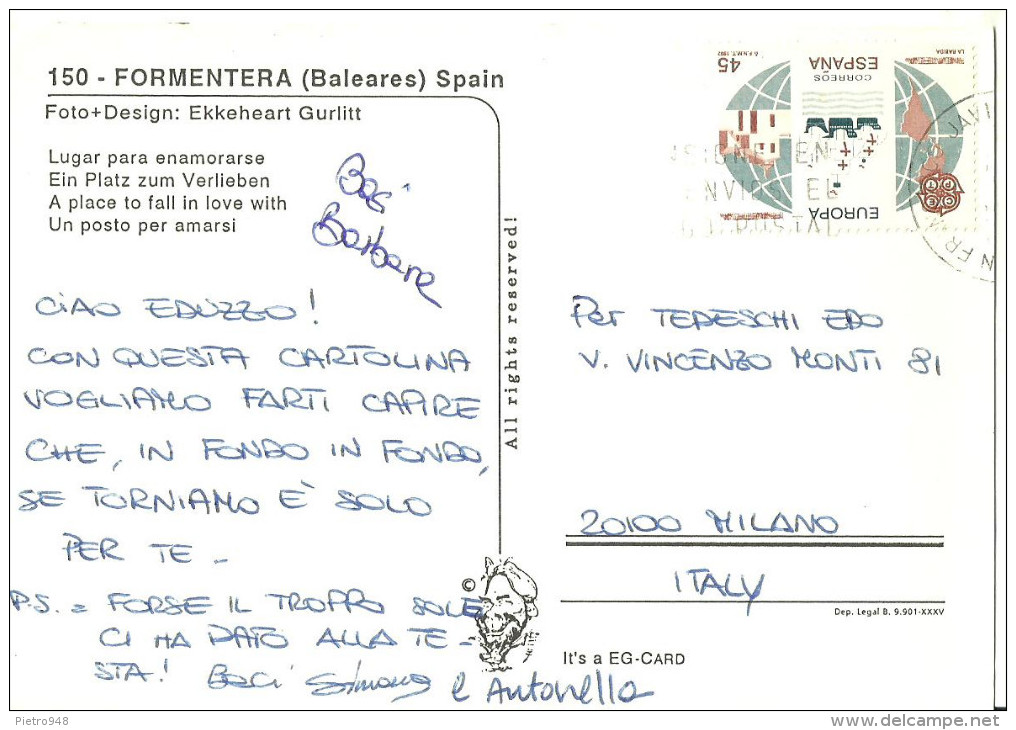 150 - FORMENTERA (Baleares) Spain
Foto+Design: Ekkeheart Gurlitt
Lugar para enamorarse
Ein Platz zum Verlieben
A place to fall in love with
Un posto per amarsi
Baci
Barbara
CIAO EDUZZO!
CON QUESTA CARTOLINA
VOGLIAMO FARTI CAPIRE
CHE, IN FONDO IN FONDO,
SE TORNIAMO È SOLO
PER TE -
P.S. = FORSE IL TROPPO SOLE
CI HA DATO ALLA TE-
STA! Baci Simona e Antonella
All rights reserved!
©
45
F.N.M.T. 1992
CORREOS
ESPAÑA
LA RABIDA
EUROPA
CEPT
Per TEDESCHI EDO
V. VINCENZO MONTI 81
20100 MILANO
ITALY
Dep. Legal B. 9.901-XXXV
It's a EG-CARD
Pietro948
www.delcampe.net